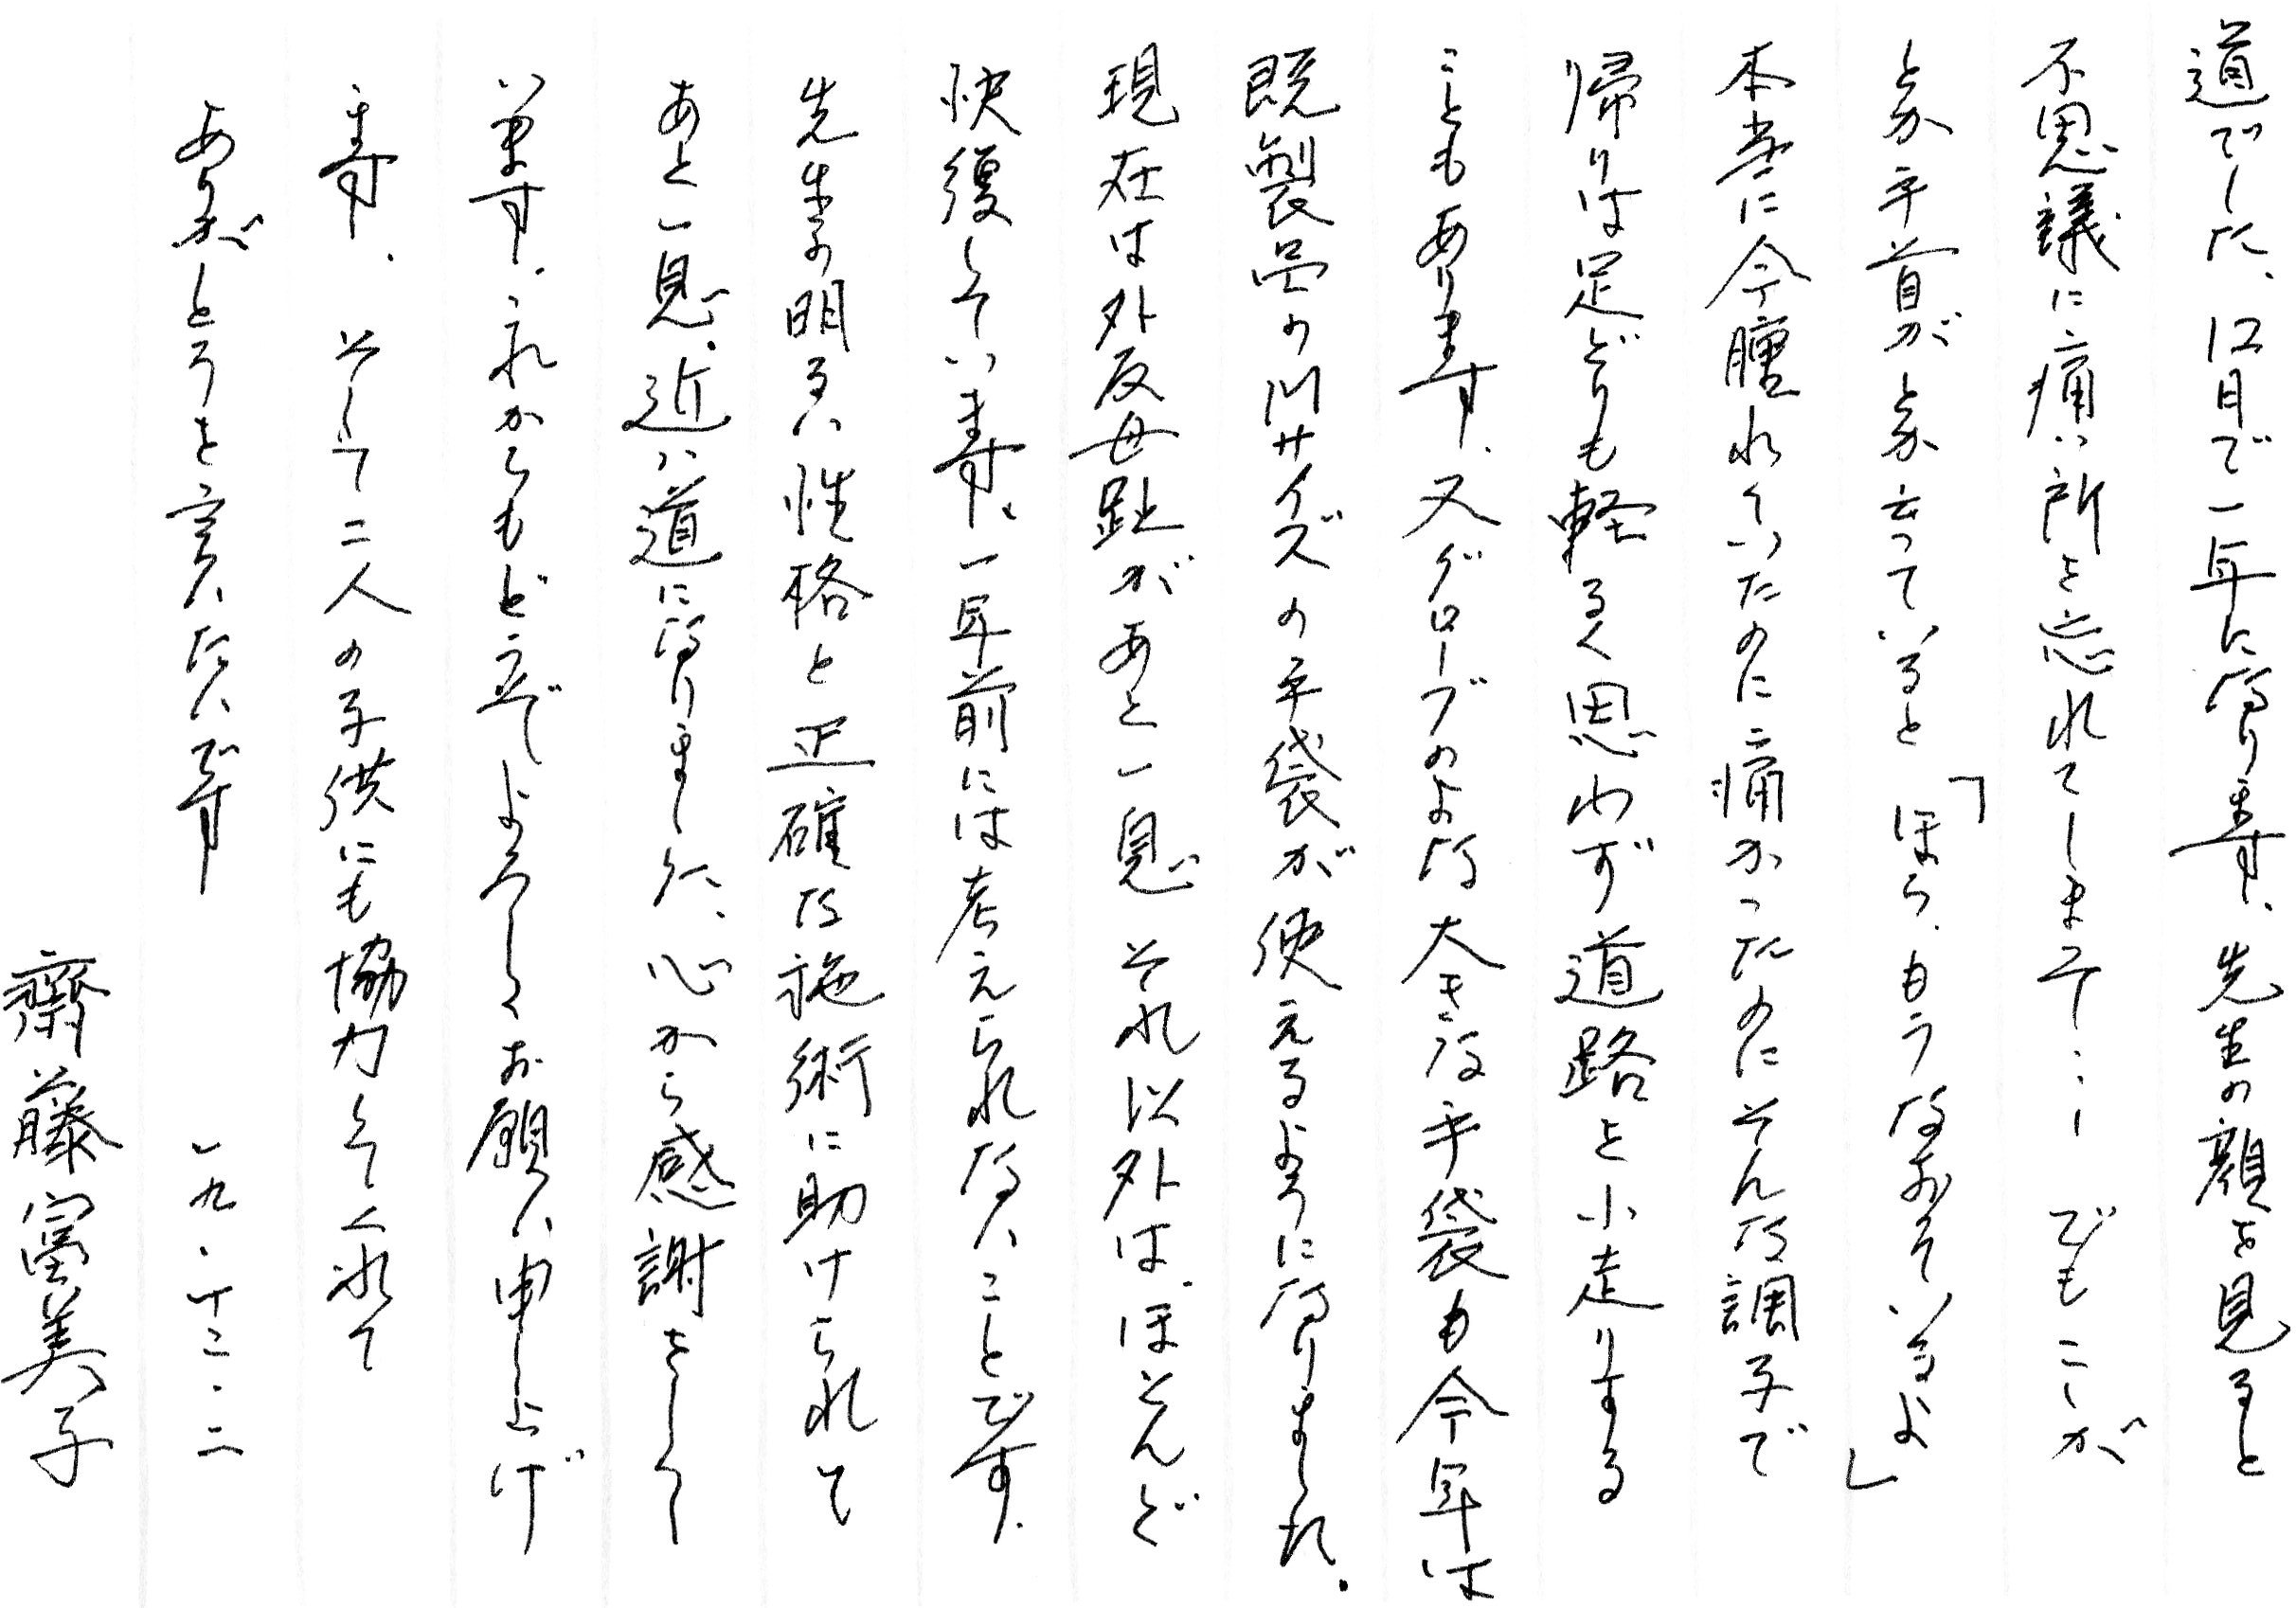 道でした、12月で一年になります、先生の顔を見ると
不思議に痛い所を忘れてしまって… でもここが
とか手首がとか云っていると「ほら、もうなおっているよ」
本当に今腫れていたのに痛かったのにそんな調子で
帰りは足どりも軽るく思わず道路を小走りする
こともあります、又グローブのような大きな手袋も今年は
既製品の川サイズの手袋が使えるようになりました。
現在は外反母趾があと一息 それ以外は、ほとんど
快復しています、一年前には考えられないことです、
先生の明るい性格と正確な施術に助けられて
あと一息、近い道になりました、心から感謝をして
います、これからもどうぞよろしくお願い申し上げ
ます、 そして二人の子供にも協力してくれて
ありがとうを言いたいです 一九・十二・二
齋藤富美子